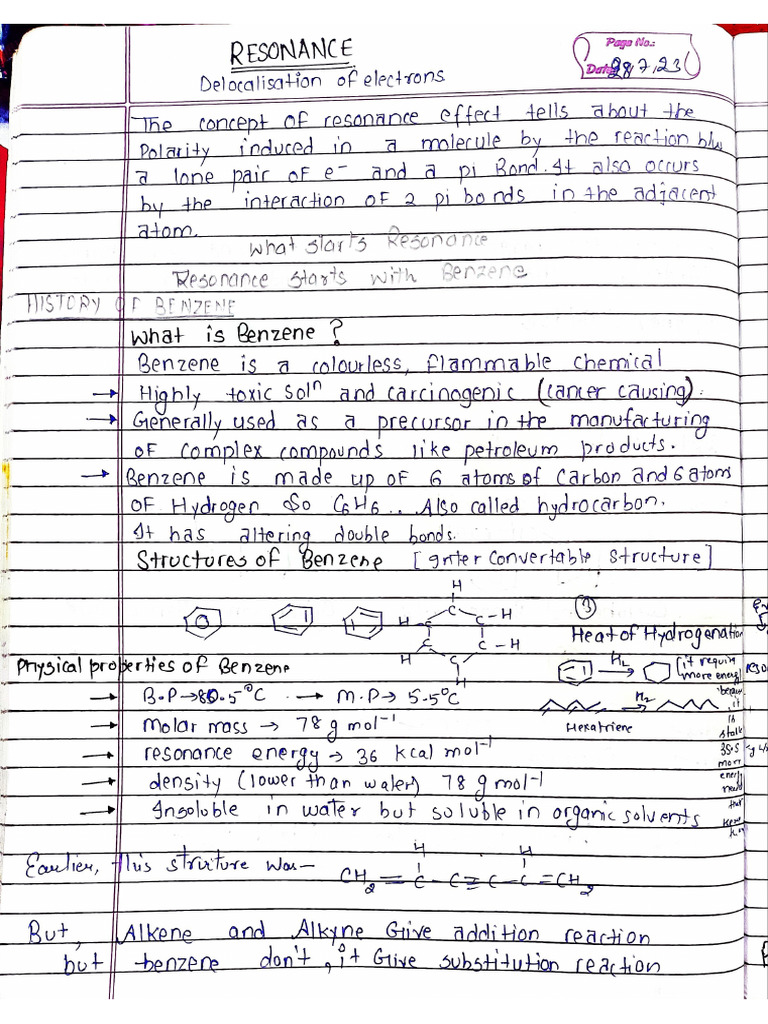 RESONANCE
Page No.:
Date: 28,7,23
Delocalisation of electrons
The concept of resonance effect tells about the
Polarity induced in a molecule by the reaction b/w
a lone pair of e⁻ and a pi Bond. It also occurs
by the interaction of 2 pi bonds in the adjacent
atom.
What starts Resonance
Resonance starts with Benzene
HISTORY OF BENZENE
What is Benzene ?
Benzene is a colourless, flammable chemical
→ Highly toxic solⁿ and carcinogenic (cancer causing).
→ Generally used as a precursor in the manufacturing
of complex compounds like petroleum products.
→ Benzene is made up of 6 atoms of Carbon and 6 atoms
of Hydrogen So C6H6.. Also called hydrocarbon.
It has altering double bonds.
Structures of Benzene [Inter Convertable Structure]
H
C
H - C C - H
C C - H
H C
H
③
Heat of Hydrogenation
Physical properties of Benzene
H2 → [it require
more energy
→ B.P → 80.5°C → M.P → 5.5°C
H2 →
Hexatriene
→ Molar mass → 78 g mol⁻¹
→ resonance energy → 36 kcal mol⁻¹
→ density (lower than water) 78 g mol⁻¹
→ Insoluble in water but soluble in organic solvents
it
is
more
energy
need
Earlier, this structure was-
H H
CH2 = C - C ≡ C - C = CH2
But, Alkene and Alkyne Give addition reaction
but benzene don't, it Give substitution reaction